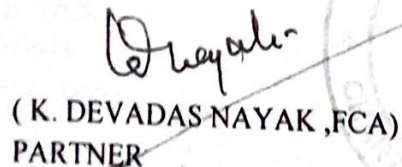 ( K. DEVADAS NAYAK ,FCA)
PARTNER